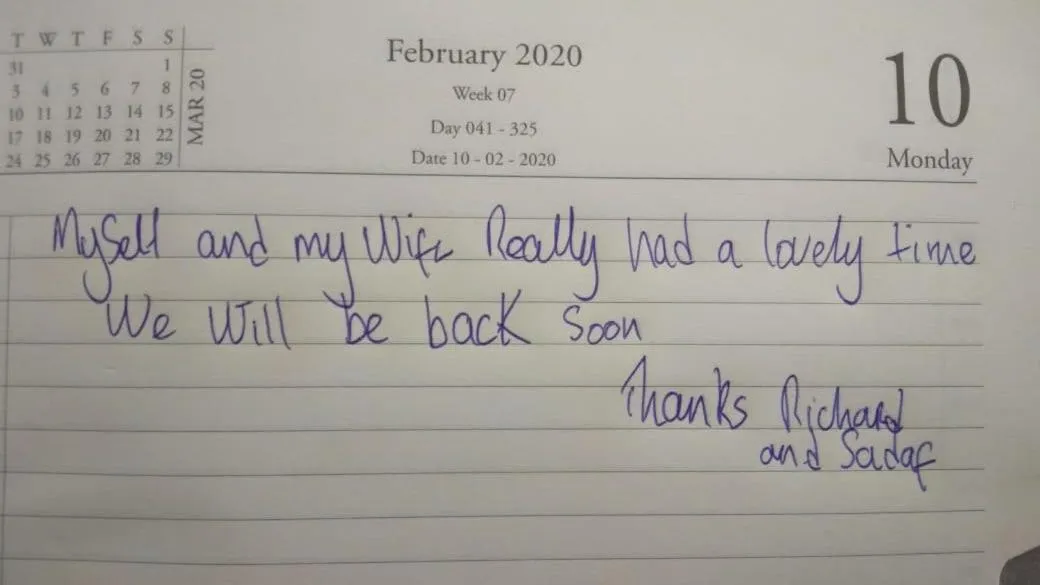 T W T F S S
31 1
3 4 5 6 7 8
10 11 12 13 14 15
17 18 19 20 21 22
24 25 26 27 28 29
MAR 20
February 2020
Week 07
Day 041 - 325
Date 10 - 02 - 2020
10
Monday
Myself and my Wife Really had a lovely time
We Will be back Soon
Thanks Richard
and Sadaf